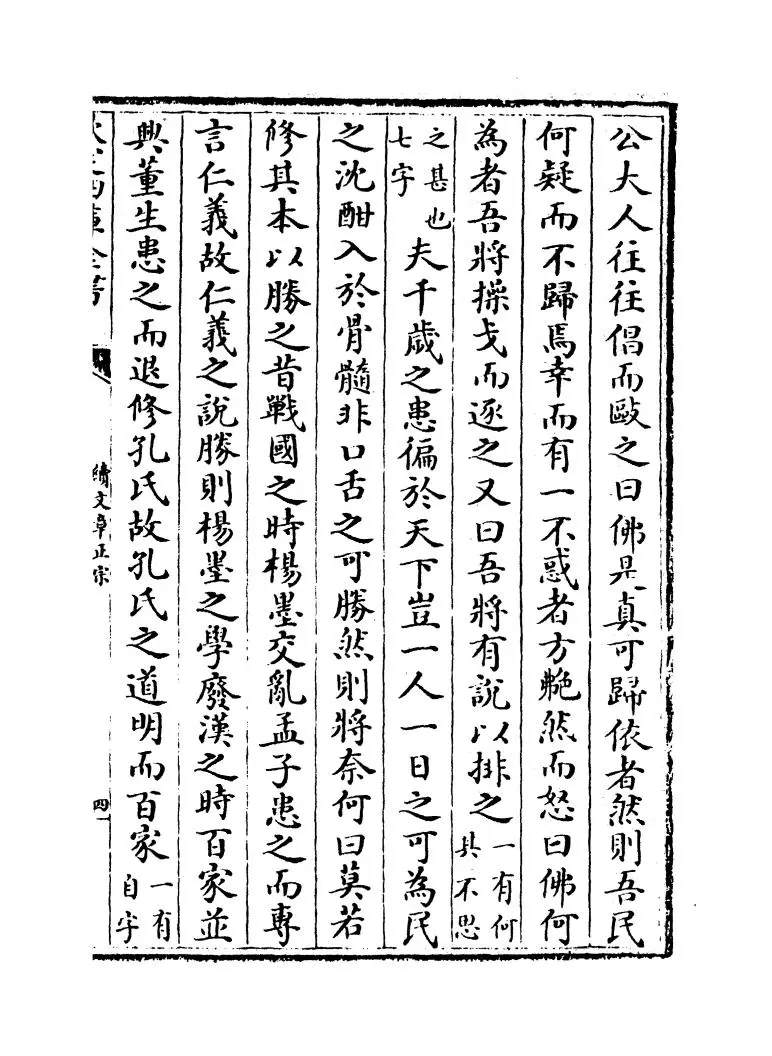 公大人往往倡而敺之曰佛是真可歸依者然則吾民
何疑而不歸焉幸而有一不惑者方艴然而怒曰佛何
為者吾將操戈而逐之又曰吾將有說以排之一有何其不思
之甚也七字夫千歲之患徧於天下豈一人一日之可為民
之沈酣入於骨髓非口舌之可勝然則將奈何曰莫若
修其本以勝之昔戰國之時楊墨交亂孟子患之而專
言仁義故仁義之說勝則楊墨之學廢漢之時百家並
興董生患之而退修孔氏故孔氏之道明而百家一有自字
續文章正宗
四一